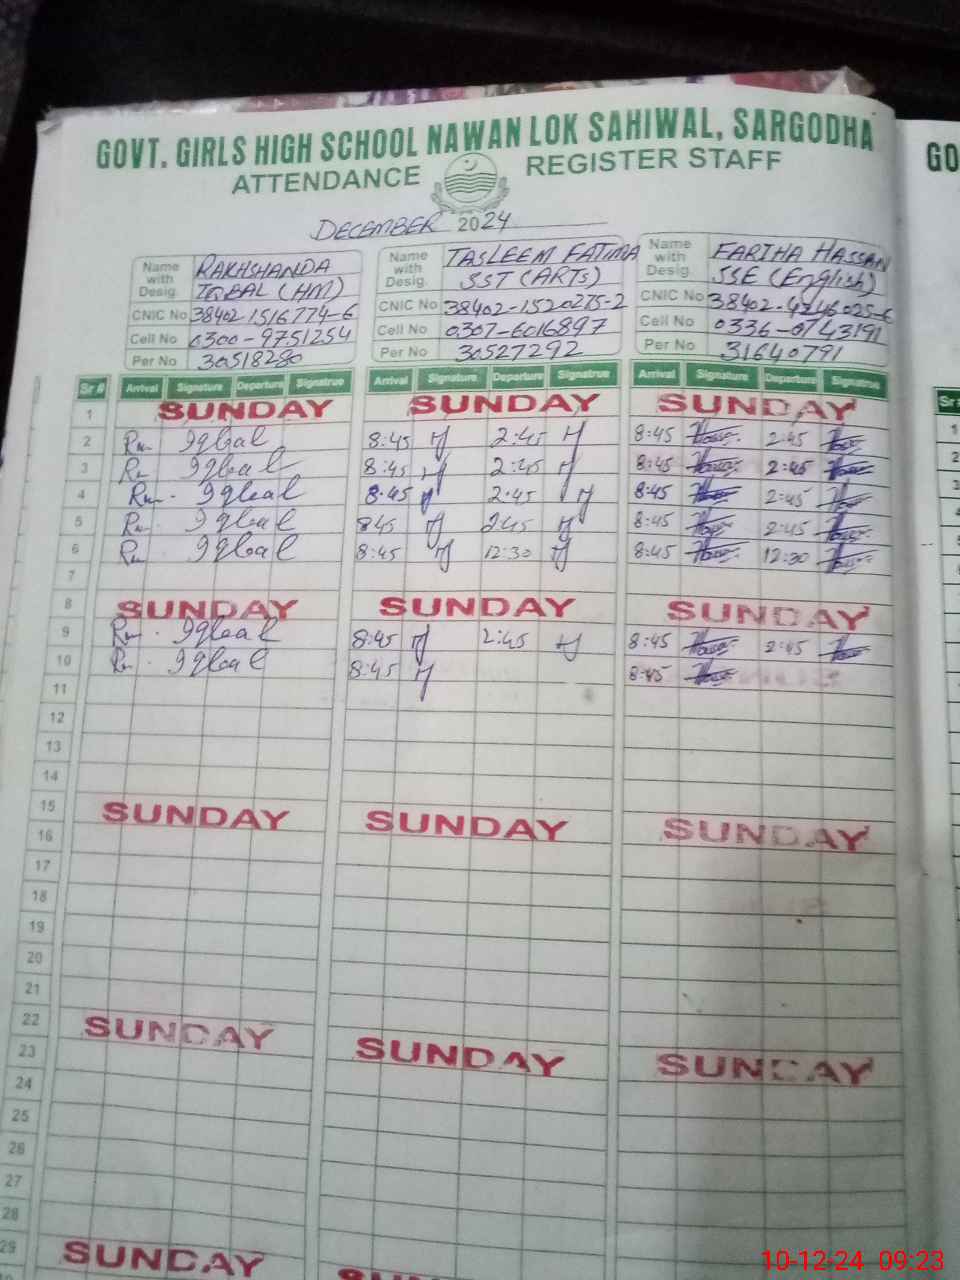 GOVT. GIRLS HIGH SCHOOL NAWAN LOK SAHIWAL, SARGODHA
GO
ATTENDANCE REGISTER STAFF
DECEMBER 2024
Name with Desig. RAKHSHANDA IQBAL (HM)
CNIC No 38402-1516774-6
Cell No 0300-9751254
Per No 30518280
Name with Desig. TASLEEM FATIMA SST (ARTS)
CNIC No 38402-1520275-2
Cell No 0307-6016897
Per No 30527292
Name with Desig. FARIHA HASSAN SSE (English)
CNIC No 38402-4246025-6
Cell No 0336-0743191
Per No 31640791
Sr # Arrival Signature Departure Signatrue Arrival Signature Departure Signatrue Arrival Signature Departure Signatrue Sr #
1 SUNDAY SUNDAY SUNDAY 1
2 Iqbal 8:45 2:45 8:45 2:45 2
3 Iqbal 8:45 2:45 8:45 2:45 3
4 Iqbal 8:45 2:45 8:45 2:45
5 Iqbal 845 245 8:45 2:45
6 Iqbal 8:45 12:30 8:45 12:30
7
8 SUNDAY SUNDAY SUNDAY
9 Iqbal 8:45 2:45 8:45 2:45
10 Iqbal 8:45 8:45
11
12
13
14
15 SUNDAY SUNDAY SUNDAY
16
17
18
19
20
21
22 SUNDAY SUNDAY SUNDAY
23
24
25
26
27
28
29 SUNDAY
10-12-24 09:23